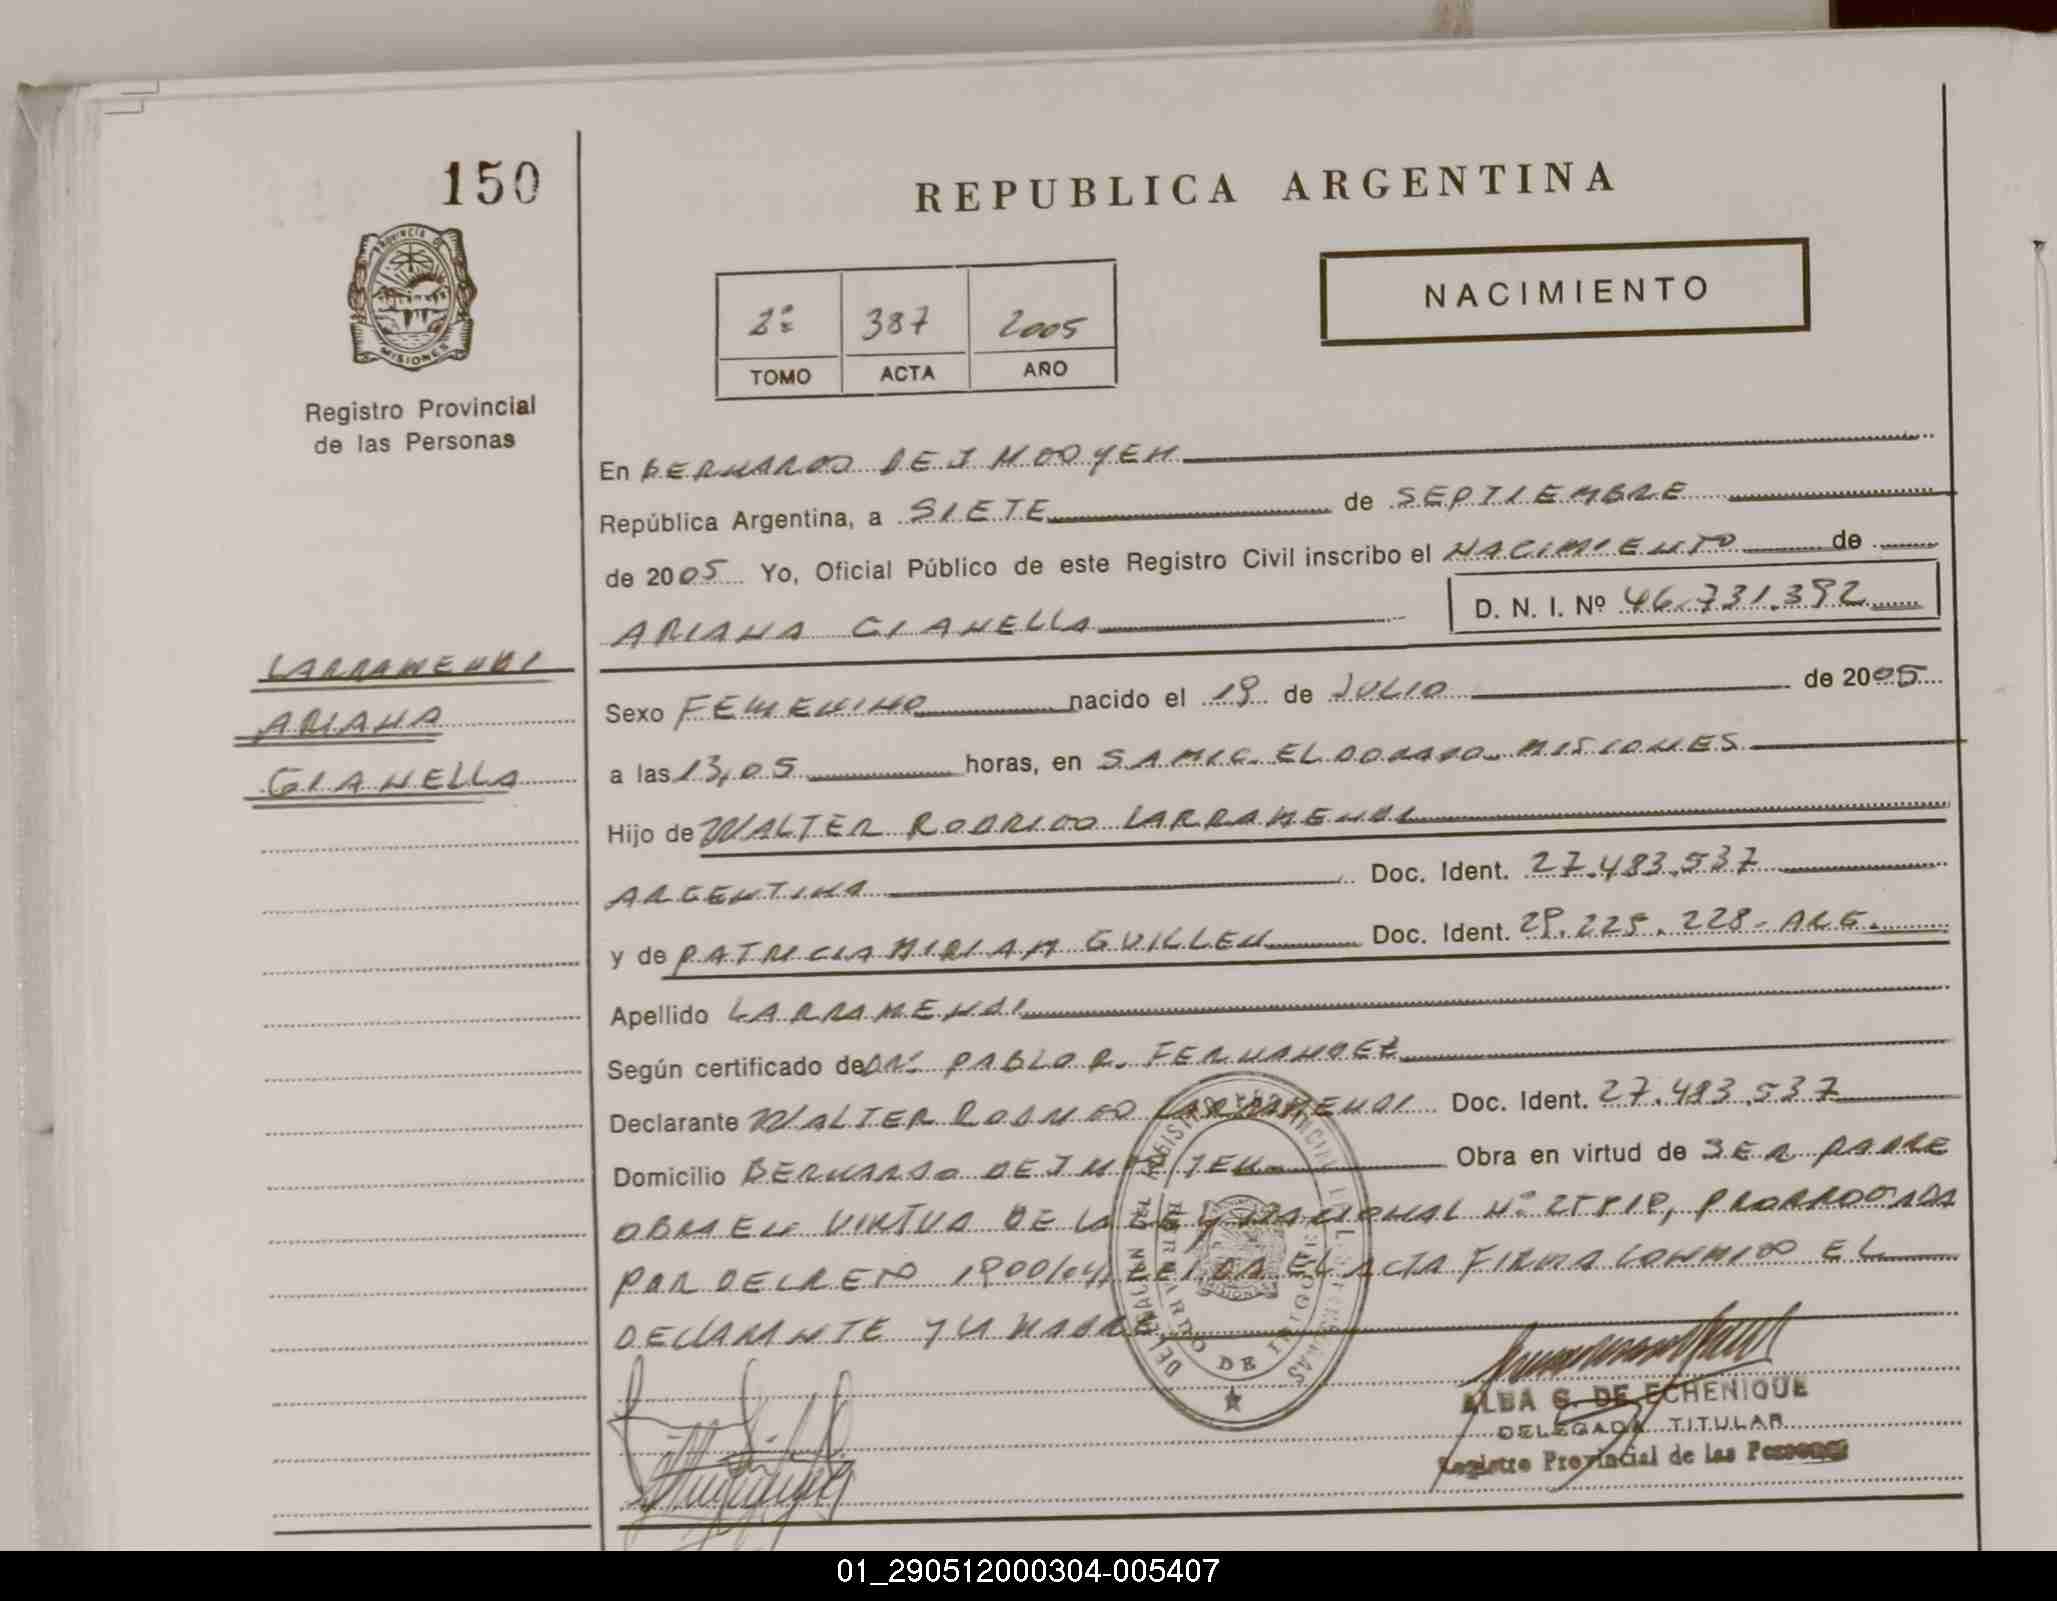 150
REPUBLICA ARGENTINA
PROVINCIA DE
MISIONES
Registro Provincial
de las Personas
NACIMIENTO
2º 387 2005
TOMO ACTA AÑO
En BERNARDO DE IRIGOYEN
República Argentina, a SIETE de SEPTIEMBRE
de 2005 Yo, Oficial Público de este Registro Civil inscribo el NACIMIENTO de
ARIANA GIANELLA D. N. I. Nº 46.731.392
LARRAMENDI
ARIANA
GIANELLA
Sexo FEMENINO nacido el 19 de JULIO de 2005
a las 13,05 horas, en SAMIC. ELDORADO. MISIONES
Hijo de WALTER RODRIGO LARRAMENDI
ARGENTINA Doc. Ident. 27.483.537
y de PATRICIA MIRIAM GUILLEN Doc. Ident. 29.225.228- ARG.
Apellido LARRAMENDI
Según certificado de DR. PABLO R. FERNANDEZ
Declarante WALTER RODRIGO LARRAMENDI Doc. Ident. 27.483.537
Domicilio BERNARDO DE IRIGOYEN Obra en virtud de SER PADRE
OBRA EN VIRTUD DE LA LEY NACIONAL Nº 25819, PRORROGADA
POR DECRETO 1900/04, LEIDA EL ACTA FIRMA CONMIGO EL
DECLARANTE Y LA MADRE
DELEGACION DEL REGISTRO PROVINCIAL DE LAS PERSONAS
BERNARDO DE IRIGOYEN
ALBA G. DE ECHENIQUE
DELEGADA TITULAR
Registro Provincial de las Personas
01_290512000304-005407